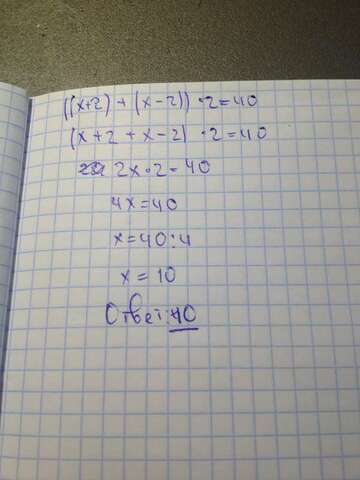 ((x+2) + (x-2)) · 2 = 40
(x+2 + x-2) · 2 = 40
2x · 2 = 40
4x = 40
x = 40 : 4
x = 10
Ответ: 10